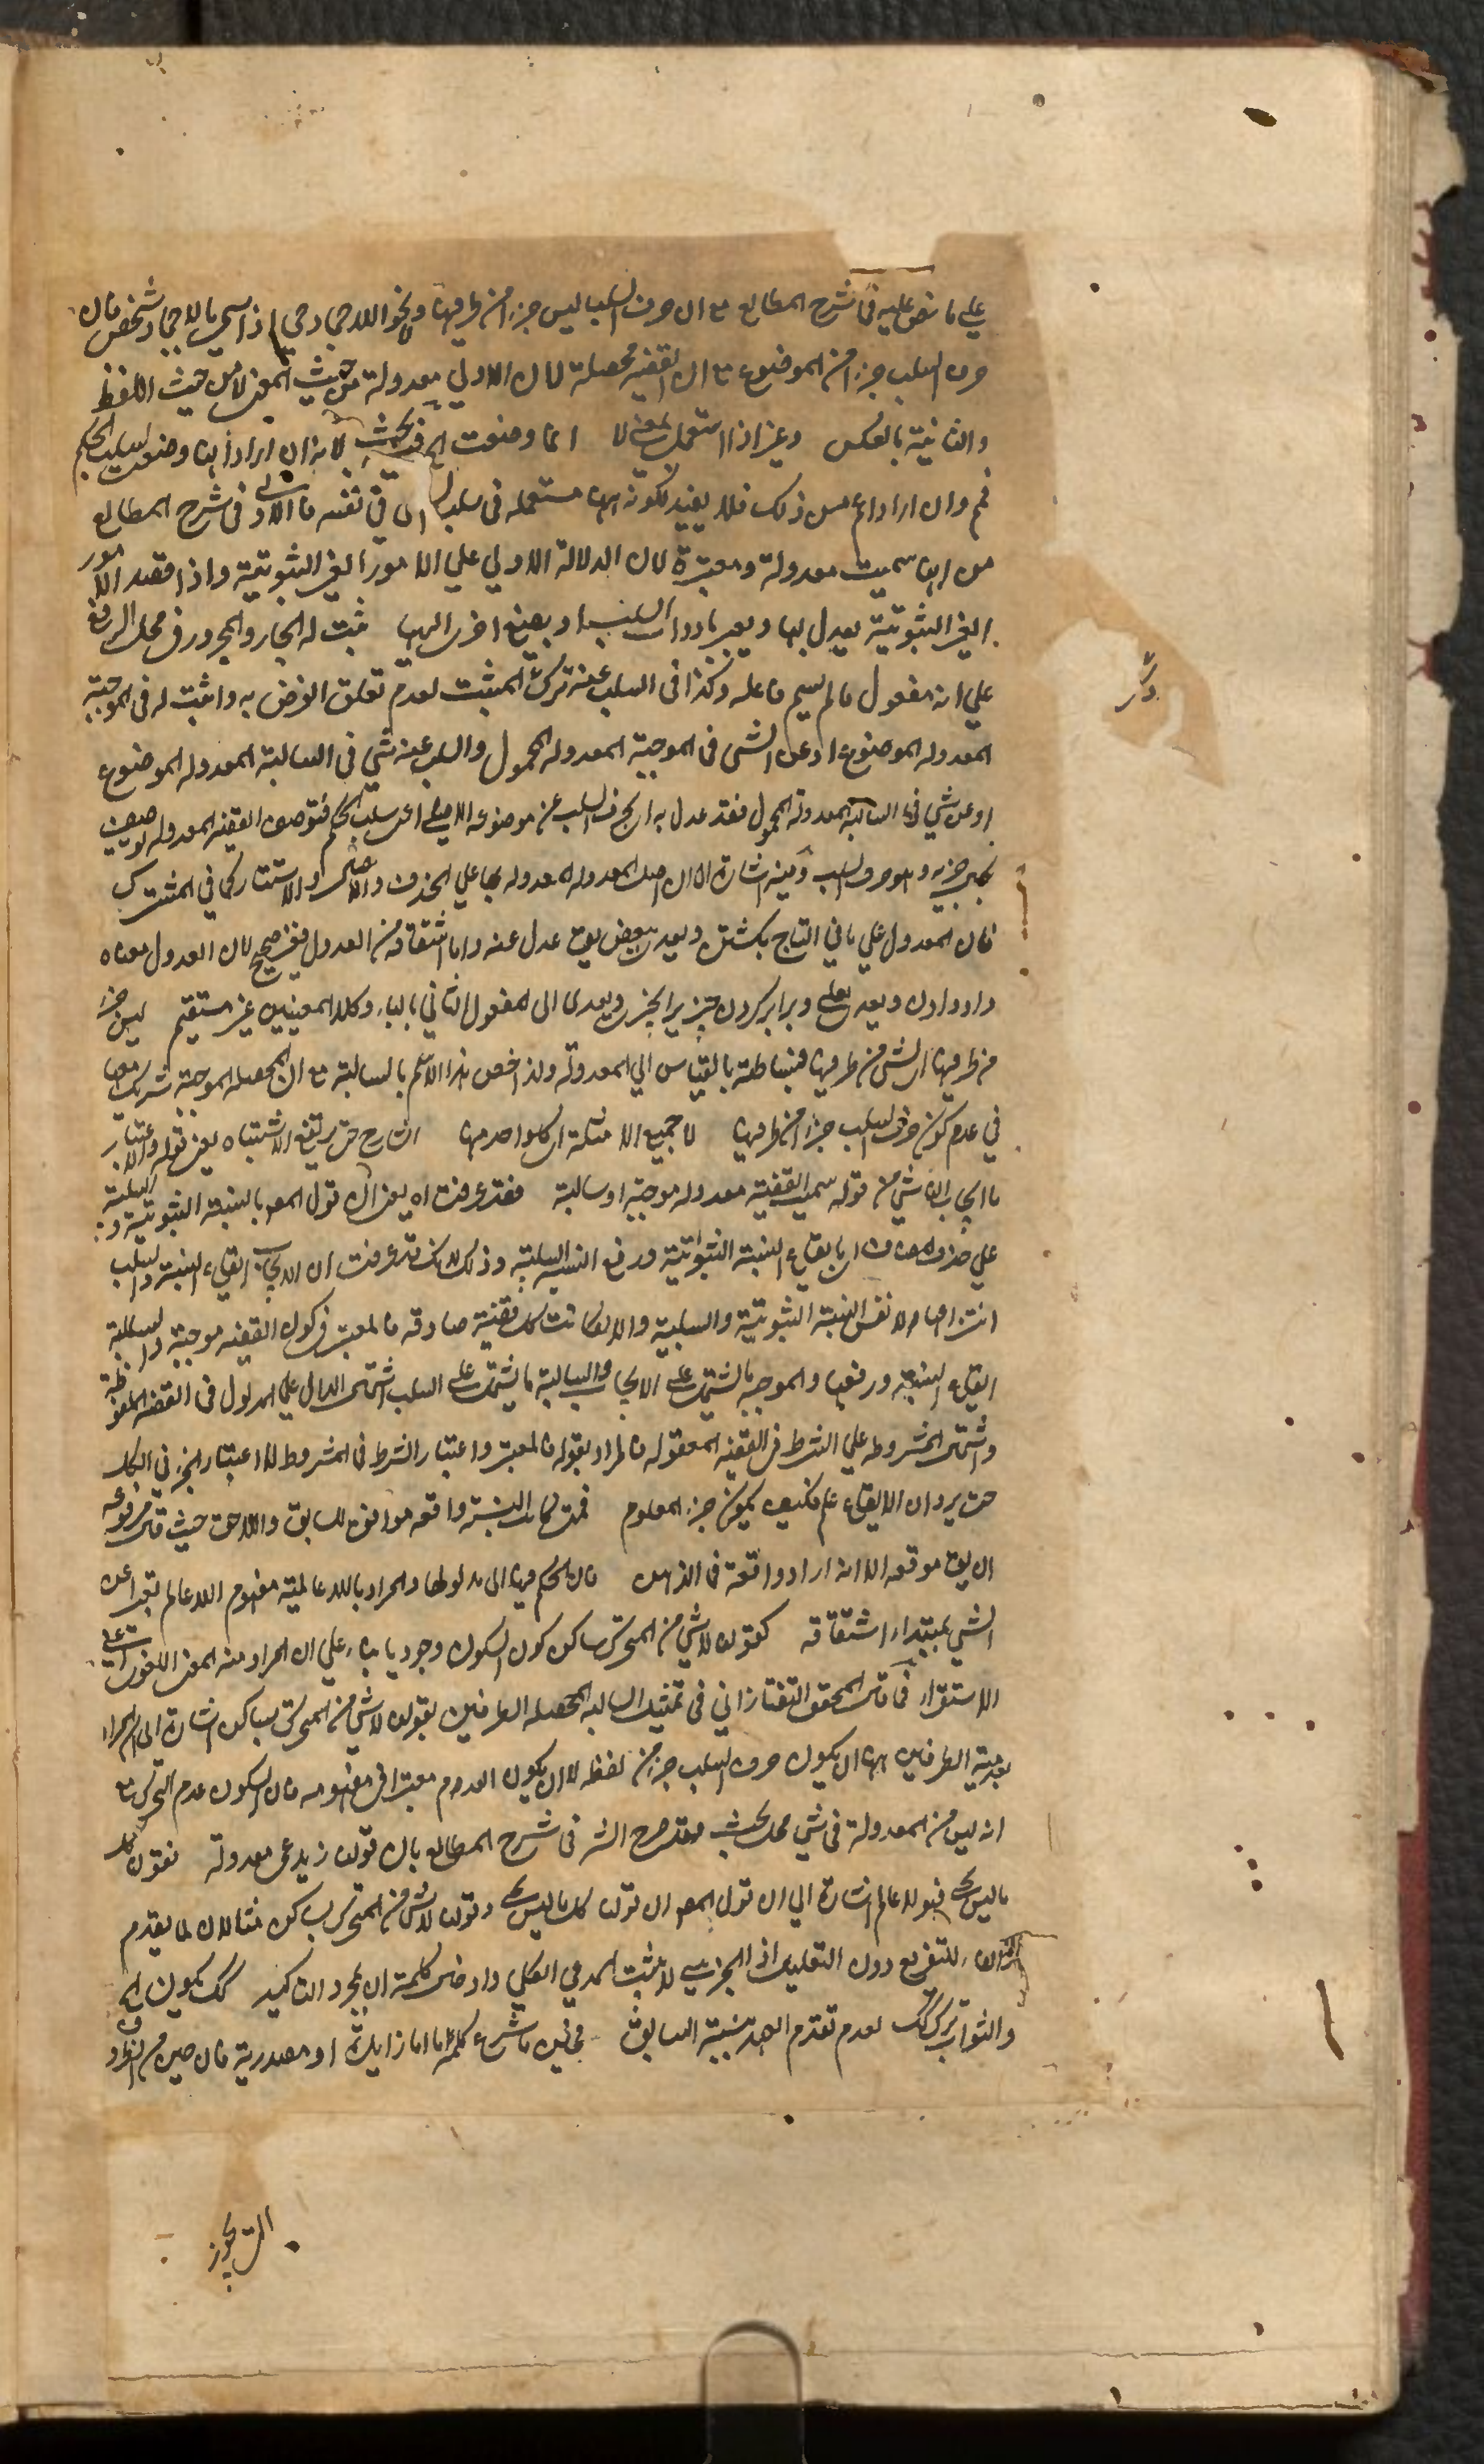 علي ما نص عليه في شرح المطالع مع ان حرف السلب ليس جزءا من طرفيها ونحو اللا جماد حي اذا سمي باللا جماد شخص فان
حرف السلب جزء من الموضوع مع ان القضية محصلة لان الاولي معدولة من حيث المعني لا من حيث اللفظ
والثانية بالعكس وغير اذا استعمل بمعني لا انما وضعت الخ فيه بحث لانه ان اراد انها وضعت لسلب الحكم
فم وان اراد اعم من ذلك فلا يفيد لكونه ههنا مستعملة في سلب الشي في نفسه فالاولي ما في شرح المطالع
من انها سميت معدولة ومغيرة لان الدلالة الاولي علي الامور الغير الثبوتية واذا قصد الامور
الغير الثبوتية يعدل بها ويعبر بادوات السلب او بصيغ اخري اليها ثبت له الجار والمجرور في محل الرفع
علي انه مفعول ما لم يسم فاعله وكذا في السلب عنه ترك المثبت لعدم تعلق الغرض به واثبت له في الموجبة
المعدولة الموضوع او عن الشي في الموجبة المعدولة المحمول والسلب عنه شي في السالبة المعدولة الموضوع
او عن شي في السالبة المعدولة المحمول فقد عدل به اي بحرف السلب عن موضوعه الاصلي اعني سلب الحكم فتوصيف القضية المعدولة توصيف
بحسب جزئه وهو حرف السلب وفيه اشارة الي ان اصل المعدولة المعدولة بها علي الحذف والايصال والاستتار كما في المشترك
فان المعدول علي ما في التاج بكشتن ويعدي بعن يقال عدل عنه واما اشتقاقه من العدول فغير صحيح لان العدول معناه
داد دادن ويعدي بعلي وبرابر كردن چيزي بچيزي ويعدي الي المفعول الثاني بالباء وكلا المعنيين غير مستقيم ليس جزءا
من طرفيها اي لشي من طرفيها فبساطته بالقياس الي المعدولة ولذا خص هذا الاسم بالسالبة مع ان المحصلة الموجبة تشركها
في عدم كون حرف السلب جزءا من طرفيها لا جميع الامثلة اي كل واحد منها الشارح حتي يرتفع الاشتباه يعني قوله والاعتبار
بايجاب الناشي من قوله سميت القضية معدولة موجبة او سالبة فقد عرفت اه يعني ان قول المصـ بالنسبة الثبوتية والسلبية
علي حذف المضاف اي بايقاع النسبة الثبوتية ورفع النسبة السلبية وذلك لانك قد عرفت ان الايجاب ايقاع النسبة والسلب
انتزاعها لا نفس النسبة الثبوتية والسلبية والا لكانت كل قضية صادقة فالمعتبر في كون القضية موجبة وسالبة
ايقاع النسبة ورفعها والموجبة ما يشتمل علي الايجاب والسالبة ما يشتمل علي السلب اشتمال الدال علي المدلول في القضية الملفوظة
واشتمال المشروط علي الشرط في القضية المعقولة فالمراد بقوله فالمعتبر واعتبار الشرط في المشروط لا اعتبار الجزء في الكل
حتي يرد ان الايقاع علم فكيف يكون جزء المعلوم فمتي كانت النسبة واقعة موافق للسابق واللاحق حيث قال مرفوعة
ان يقال موقعه الا انه اراد واقعة في الذهن فان الحكم فيها الي مدلولها والمراد باللاعالمية مفهوم اللاعالم تعبيرا عن
الشي بمبتداء اشتقاقه كقولنا لا شي من المتحرك بساكن كون السكون وجوديا بناء علي ان المراد منه المعني اللغوي اعني
الاستقرار فما قال المحقق التفتازاني في تمثيل السالبة المحصلة الطرفين بقولنا لا شي من المتحرك بساكن اشارة الي ان المراد
بعدمية الطرفين ههنا ان يكون حرف السلب جزءا من لفظه لا ان يكون العدم معتبرا في مفهومه فان السكون عدم الحركة مع
انه ليس من المعدولة في شي محل بحث فقد صرح الشـ في شرح المطالع بان قولنا زيد اعمي معدولة فقولنا كل
ما ليس بحي فهو لا عالم اشارة الي ان قول المصـ ان قولنا كل ما ليس بحي وقولنا لا شي من المتحرك بساكن مثالان لما يقدم
الفاء للتفريع دون التعليل اذ الجزئي لا يثبت المدعي الكلي وادخل كلمة ان لمجرد التاكيد كك يكون الخ
والثواني ترك كك لعدم تقدم العدمية السابق فحين ما شرع كلمة ما اما زايدة او مصدرية فان حين من الظروف
التي يجوز